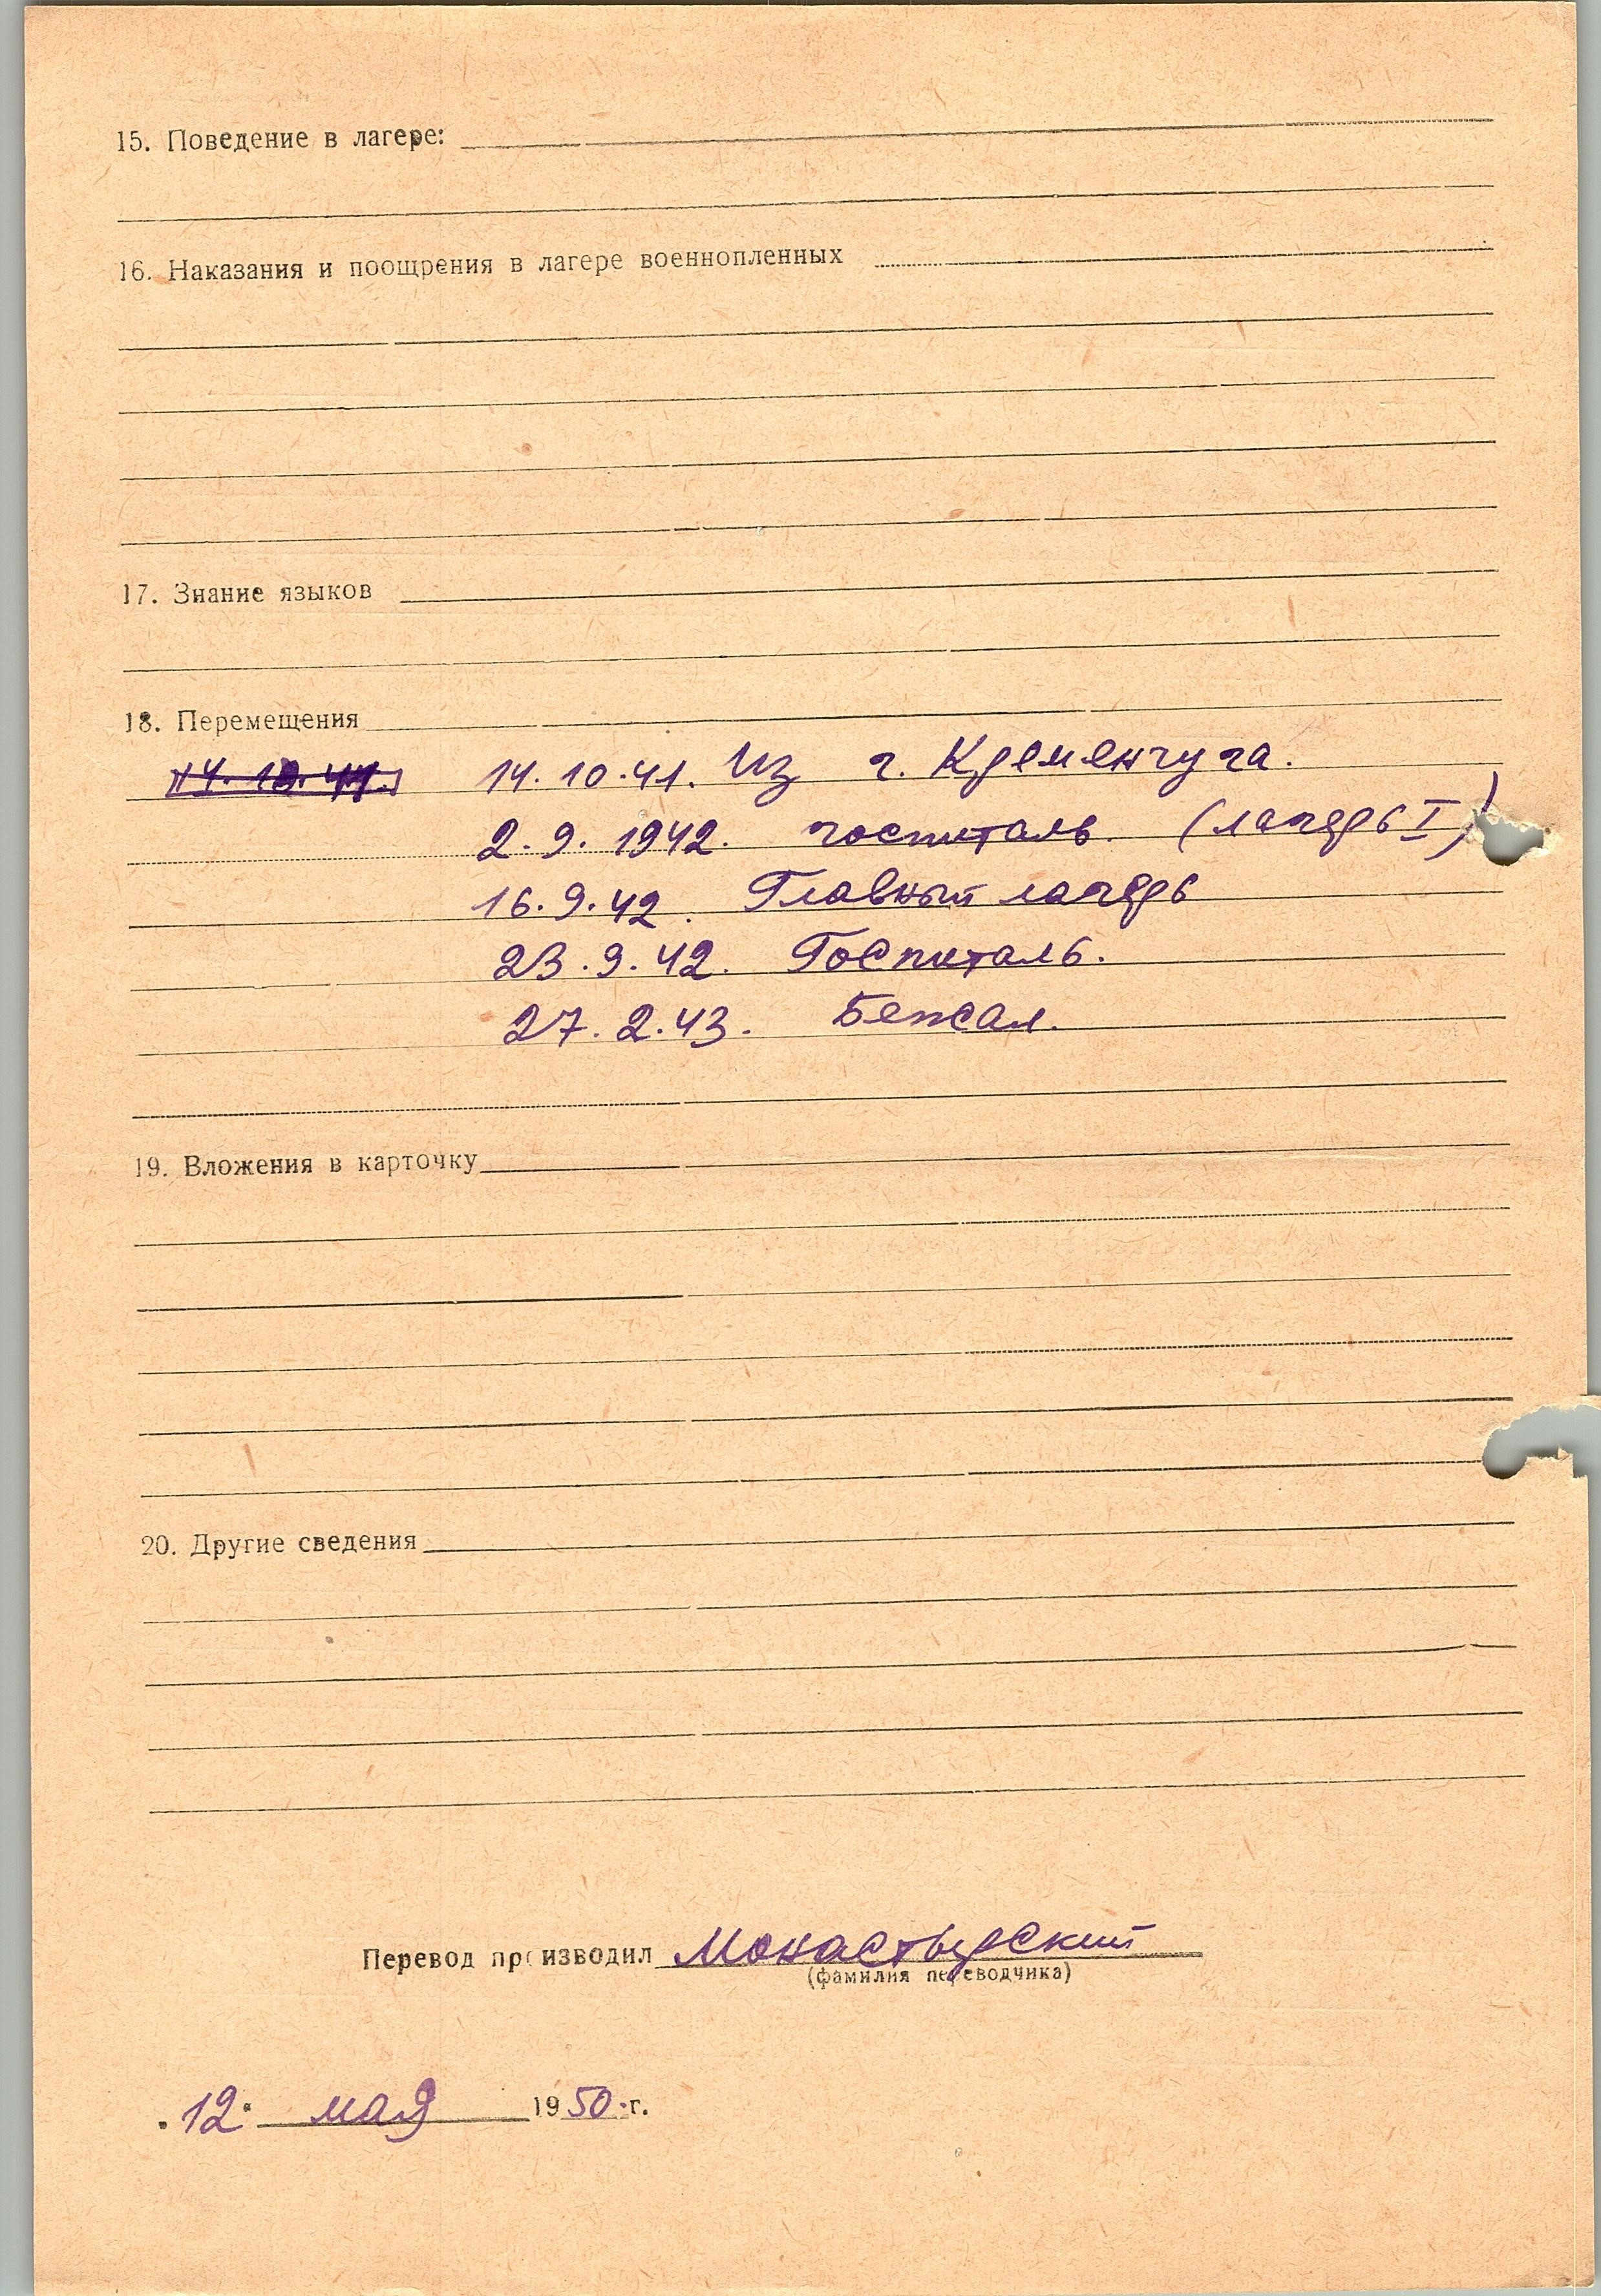 15. Поведение в лагере:
16. Наказания и поощрения в лагере военнопленных
17. Знание языков
18. Перемещения
14.10.41. 14.10.41. Из г. Кременчуга.
2.9.1942. госпиталь. (лагерь I)
16.9.42. Главный лагерь
23.9.42. Госпиталь.
27.2.43. Бежал.
19. Вложения в карточку
20. Другие сведения
Перевод производил Монастырский
(фамилия переводчика)
"12" мая 1950 г.